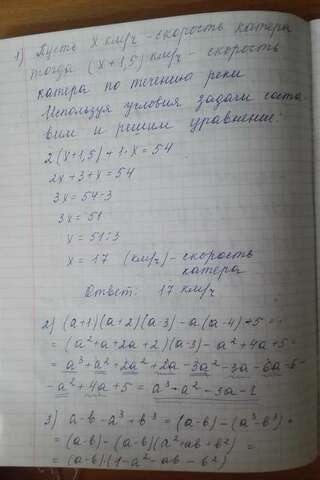 1) Пусть х км/ч - скорость катера
тогда (х+1,5) км/ч - скорость
катера по течению реки
Используя условия задачи соста-
вим и решим уравнение:
2(х+1,5)+1·х=54
2х+3+х=54
3х=54-3
3х=51
х=51:3
х=17 (км/ч) - скорость
катера
Ответ: 17 км/ч
2) (a+1)(a+2)(a-3)-a(a-4)+5=
=(a²+a+2a+2)(a-3)-a²+4a+5=
=a³+a²+2a²+2a-3a²-3a-6a-6-
-a²+4a+5=a³-a²-3a-1
3) a-b-a³+b³=(a-b)-(a³-b³)=
=(a-b)-(a-b)(a²+ab+b²)=
=(a-b)(1-a²-ab-b²)